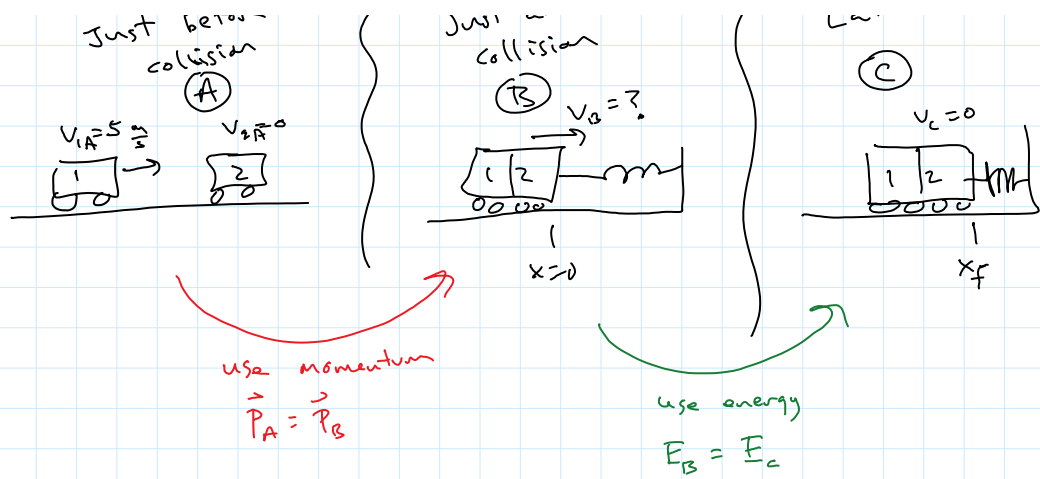 Just before
collision
A
V₁A = 5 m/s
V₂A = 0
1
2
Just a
collision
B
V_B = ?
1 2
x=0
C
V_C = 0
1 2
x_f
use momentum
P⃗_A = P⃗_B
use energy
E_B = E_C